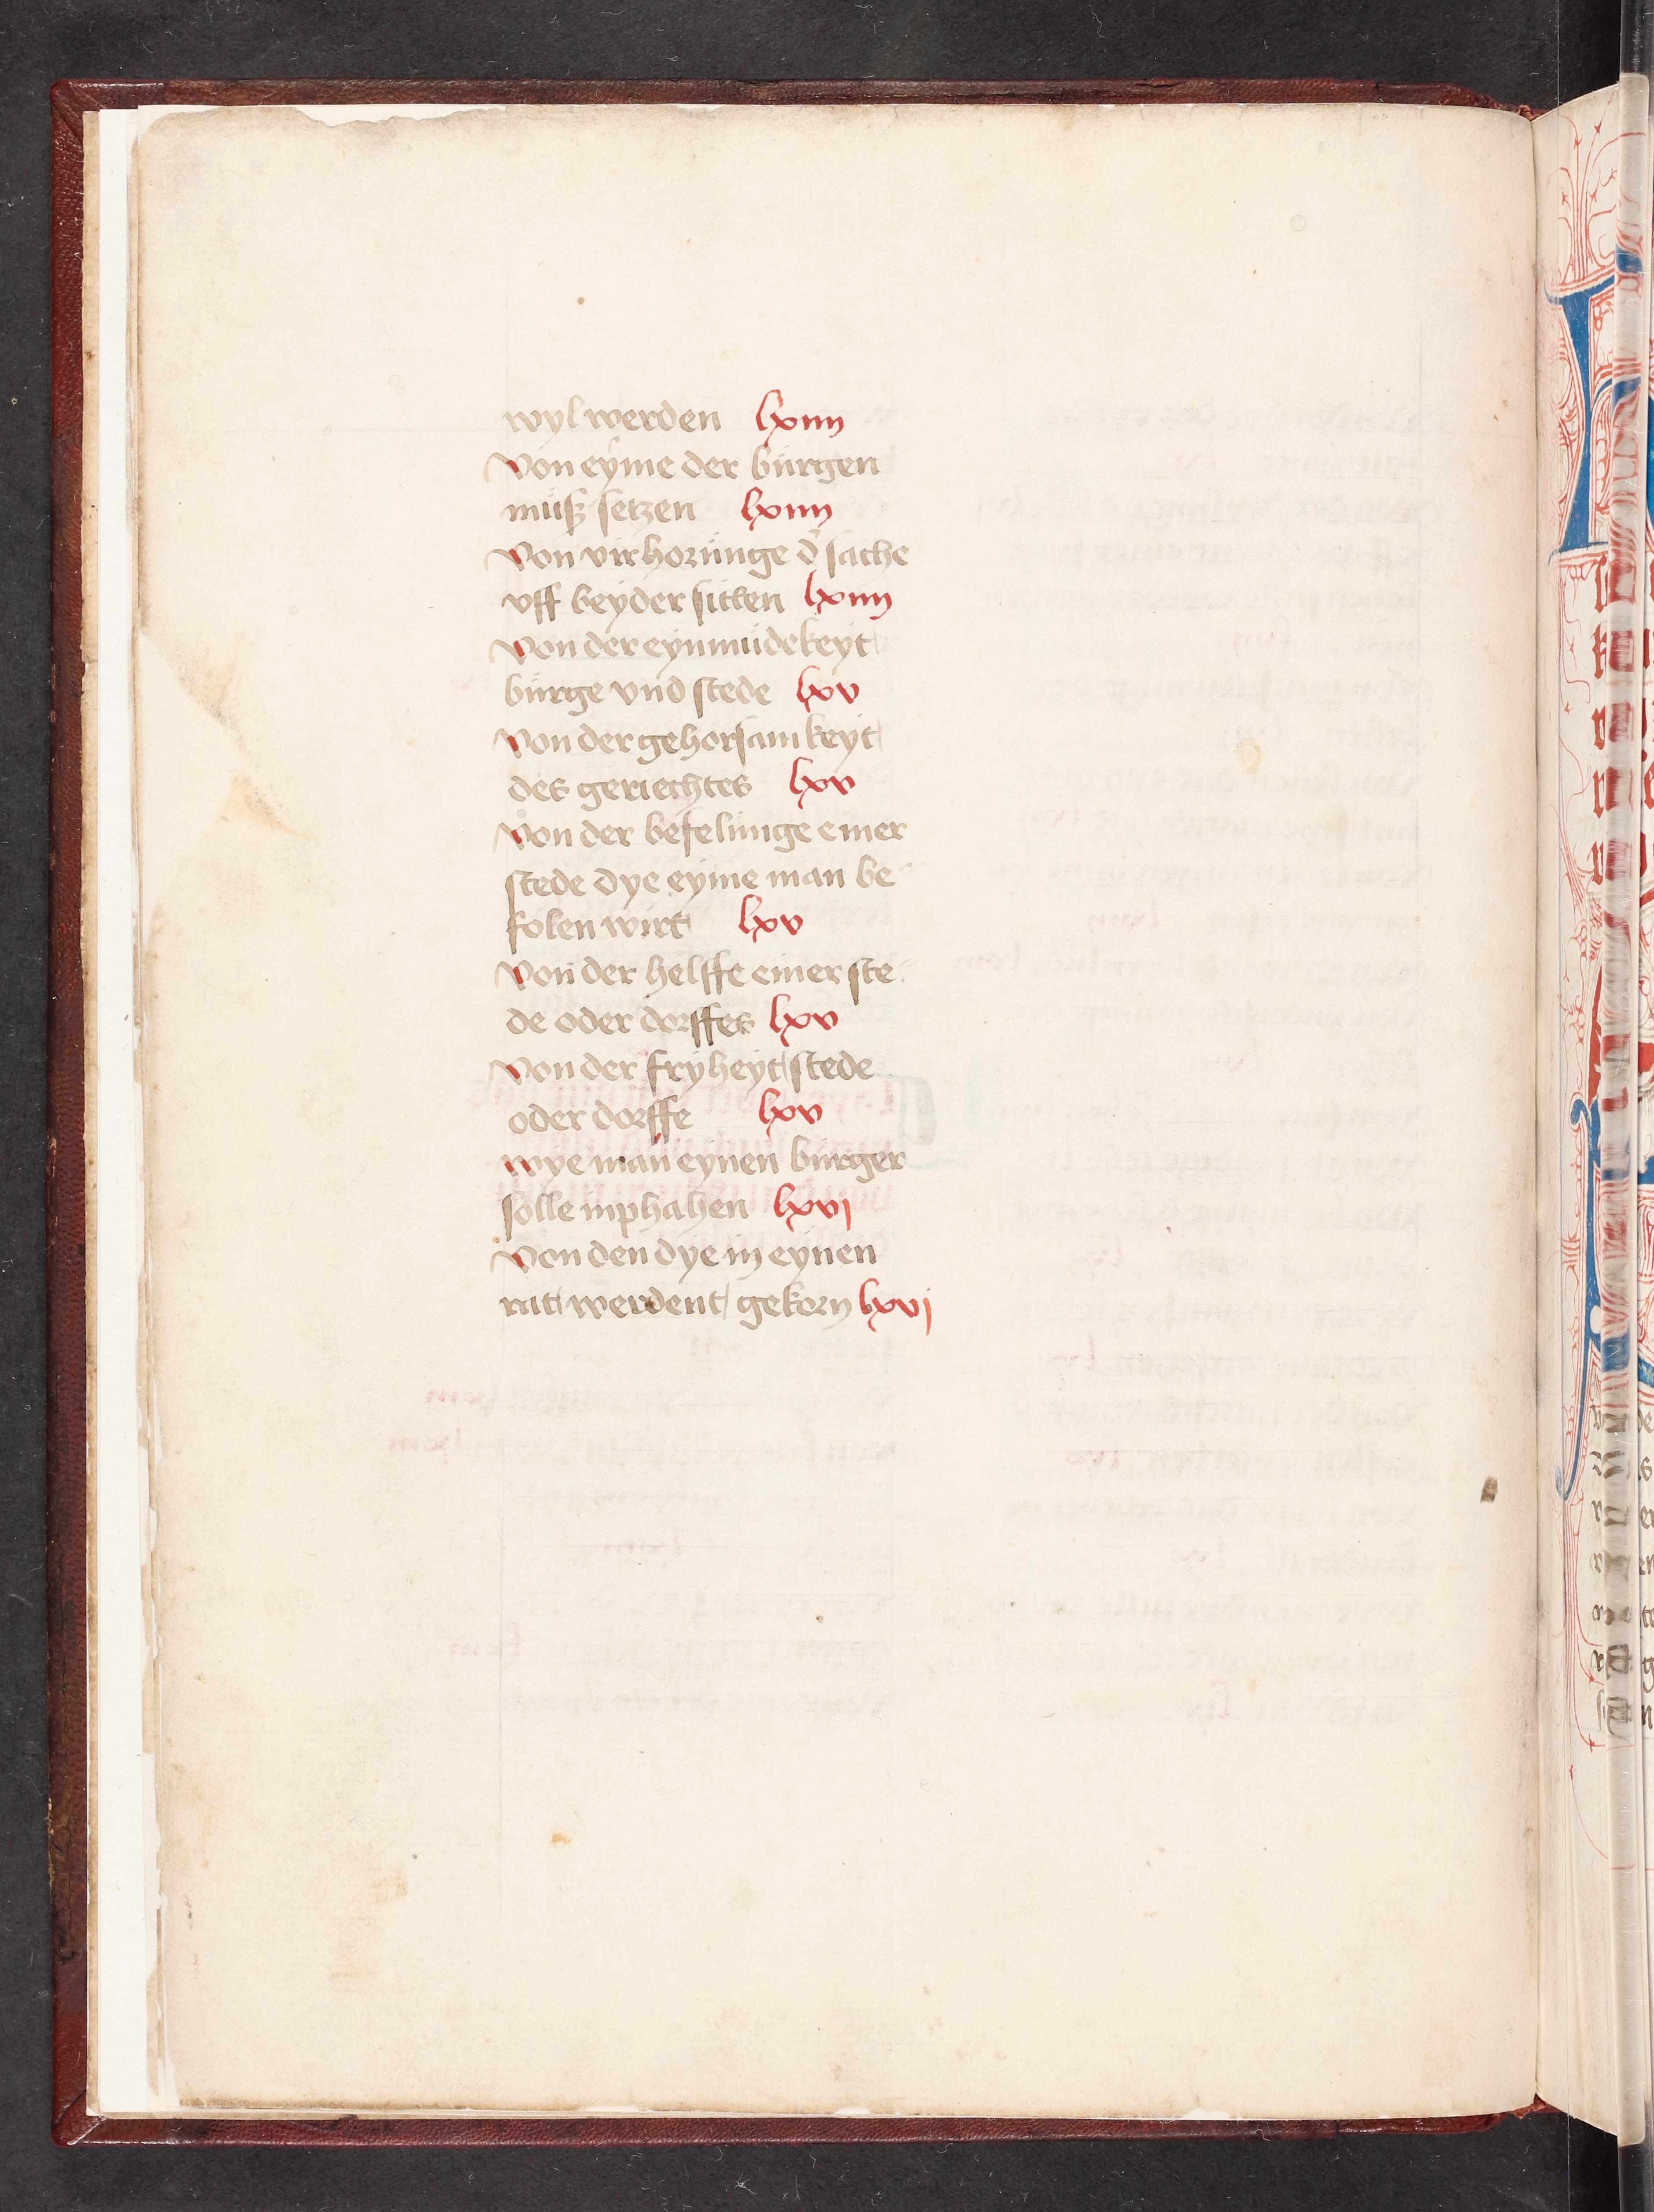 wyl werden lxiiij
Von eyme der bürgen
müsz setzen lxiiij
Von virhorünge d' sache
vff beyder sitten lxiiij
Von der eynmüdekeyt
bürge vnd stede lxv
Von der gehorsamkeyt
des geriechtes lxv
Von der befelünge einer
stede dye eyme man be
folen wirt lxv
Von der helffe einer ste
de oder dorffes lxv
Von der fryheyt stede
oder dorffe lxv
wye man eynen bürger
solle inphahen lxvj
Von den dye in eynen
rat werdent gekorn lxvj